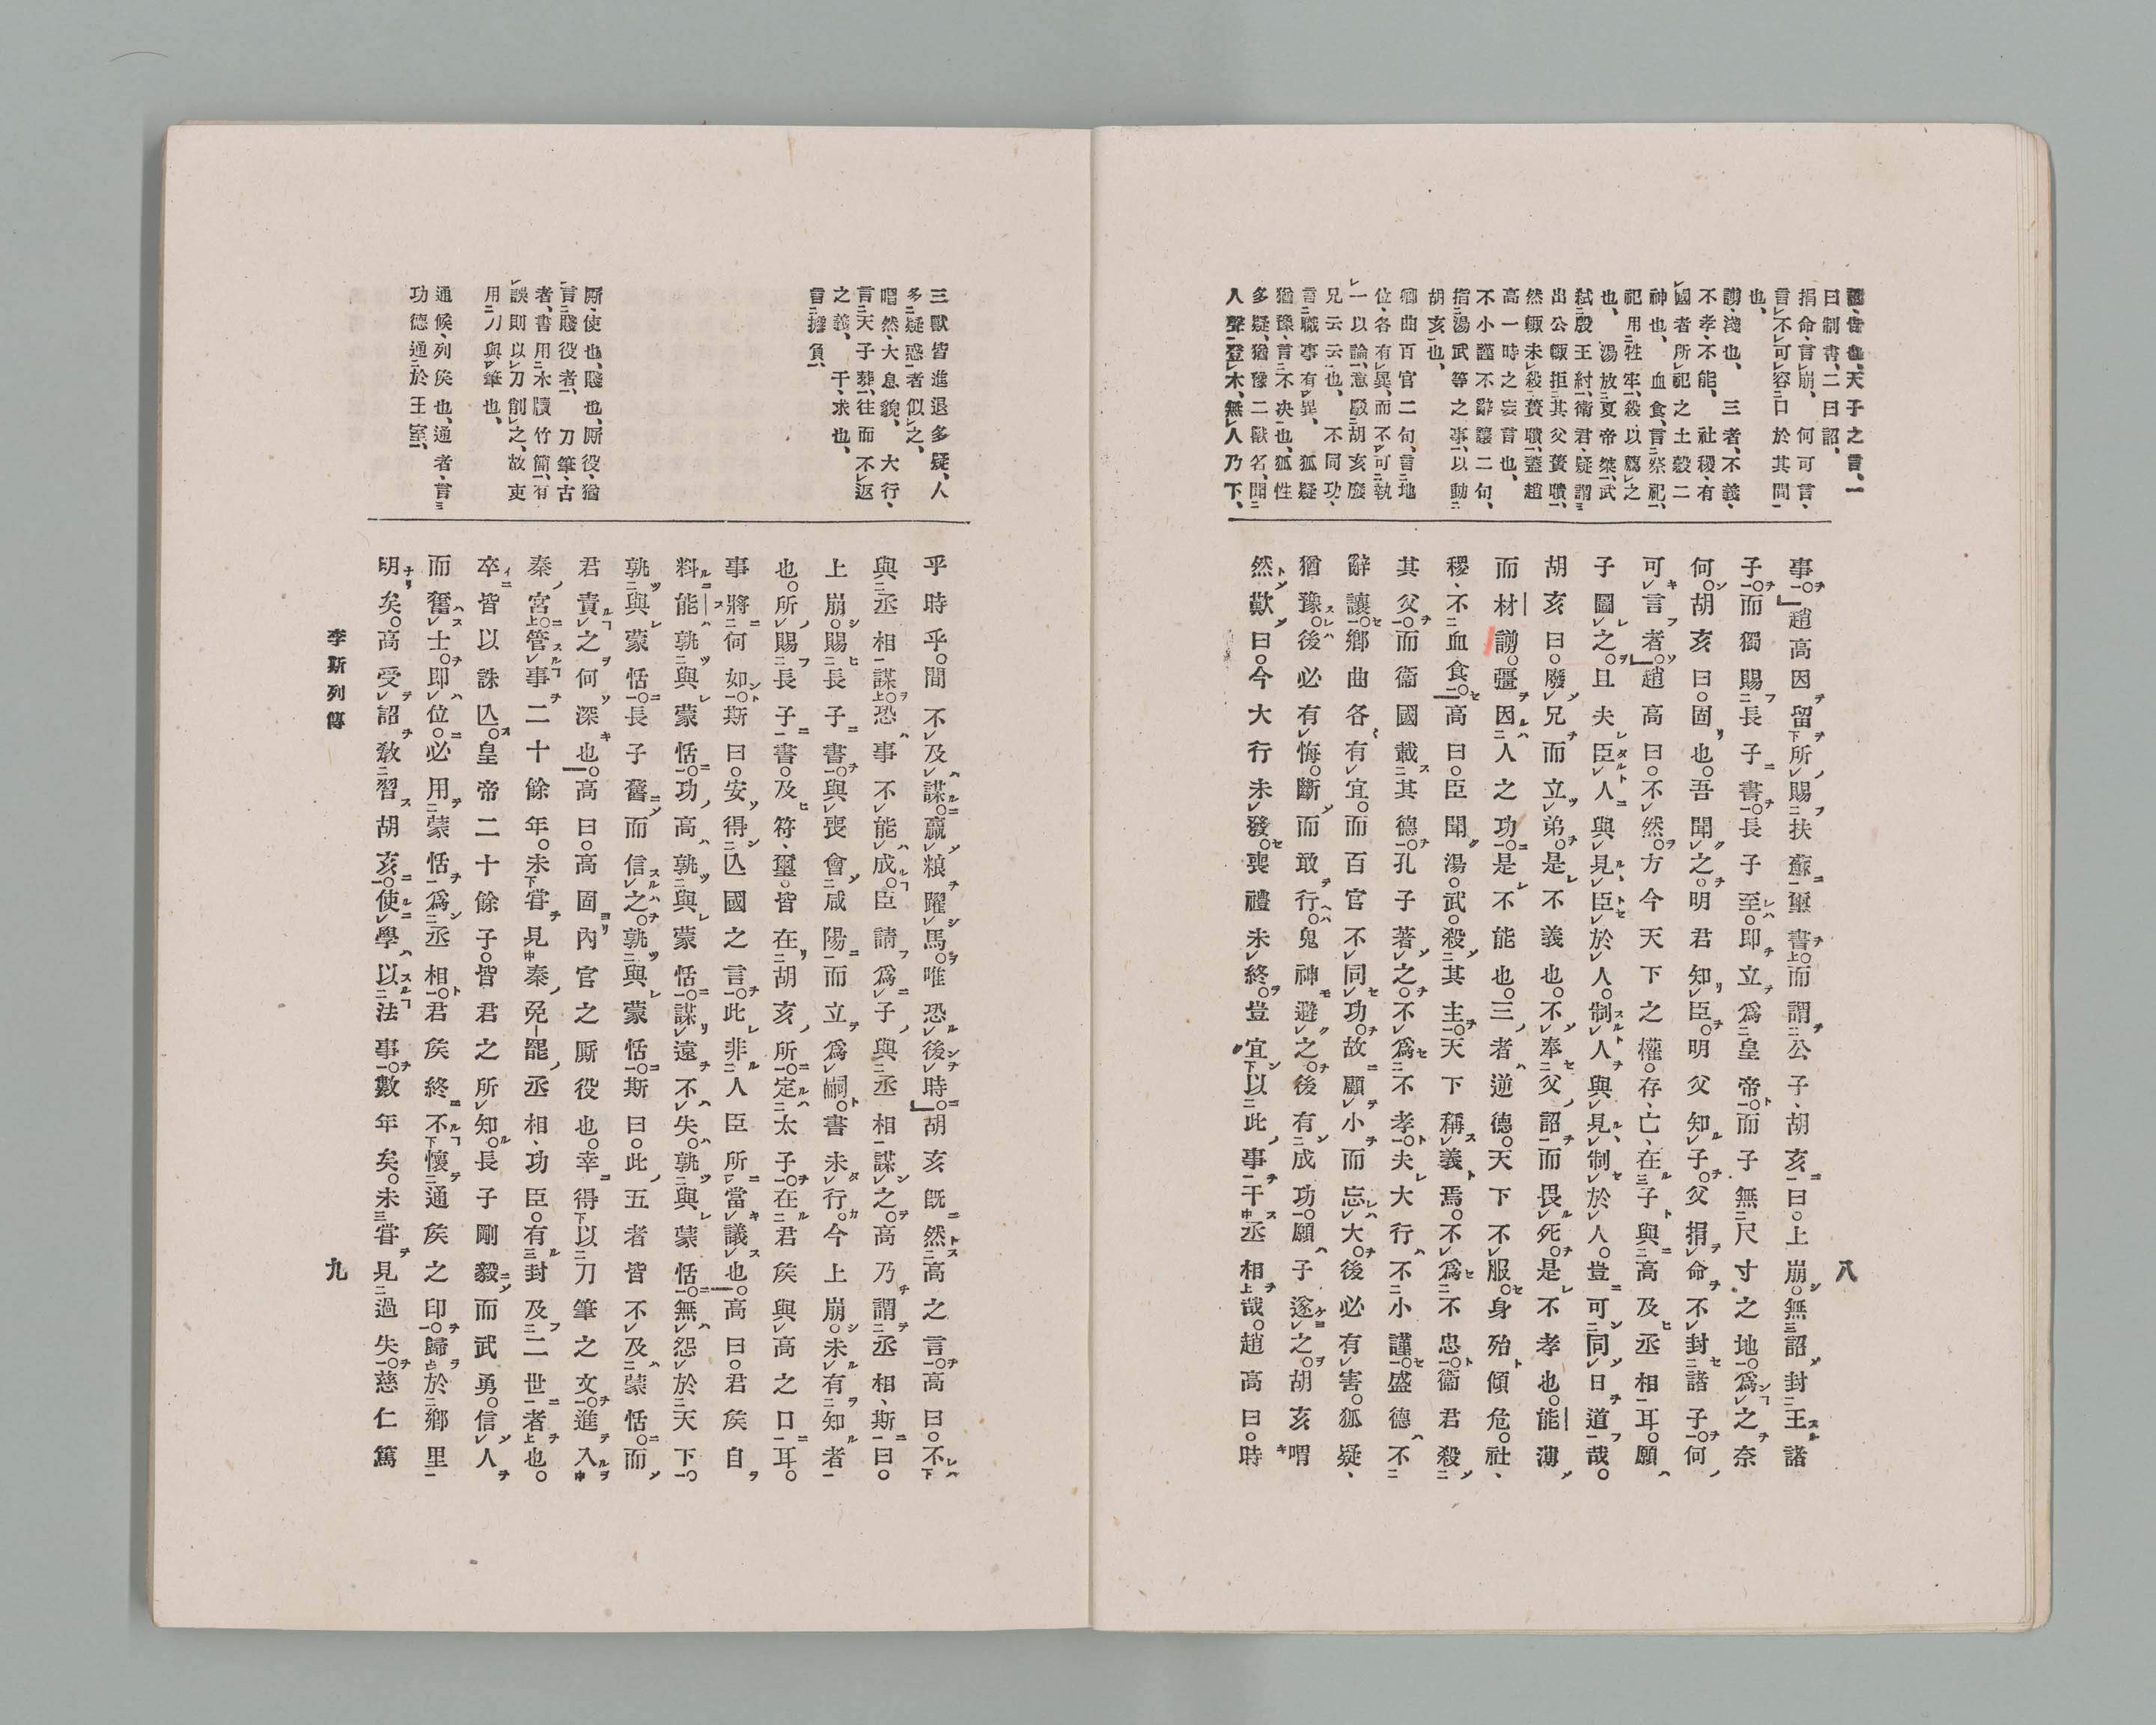 詔、告也、天子之言、一
曰制書、二曰詔、
捐命、言崩、何可言、
言不可容口於其間
也、
謭、淺也、三者、不義、
不孝、不能、社稷、有
國者所祀之土穀二
神也、血食、言祭祀、
祀用牲牢、殺以薦之
也、湯放夏帝桀、武
弑殷王紂、衞君、疑謂
出公輙拒其父蕢聵、
然輙未殺蕢聵、蓋趙
高一時之妄言也、
不小謹不辭讓二句、
指湯武等之事、以動
胡亥也、
鄉曲百官二句、言地
位、各有異、而不可執
一以論、意廢胡亥廢
兄云云也、不同功、
言職事有異、狐疑
猶豫、言不决也、狐性
多疑、猶豫二獸名、聞
人聲登木、無人乃下、
事。」趙高因留所賜扶蘇璽書。而謂公子、胡亥曰。上崩。無詔封王諸
子。而獨賜長子書。長子至。卽立爲皇帝。而子無尺寸之地。爲之奈
何。胡亥曰。固也。吾聞之。明君知臣。明父知子。父捐命不封諸子。何
可言者。」趙高曰。不然。方今天下之權。存、亡、在子與高及丞相耳。願
子圖之。且夫臣人與見臣於人。制人與見制於人。豈可同日道哉。
胡亥曰。廢兄而立弟。是不義也。不奉父詔而畏死。是不孝也。能薄
而材謭。彊因人之功。是不能也。三者逆德。天下不服。身殆傾危。社、
稷、不血食。高曰。臣聞湯。武。殺其主。天下稱義焉。不爲不忠。衞君殺
其父。而衞國戴其德。孔子著之。不爲不孝。夫大行不小謹。盛德不
辭讓。鄉曲各有宜。而百官不同功。故顧小而忘大。後必有害。狐疑、
猶豫。後必有悔。斷而敢行。鬼神避之。後有成功。願子遂之。胡亥喟
然歎曰。今大行未發。喪禮未終。豈宜以此事干丞相哉。趙高曰。時
八
三獸皆進退多疑、人
多疑惑者似之、
喟然、大息貌、大行、
言天子葬、往而不返
之義、干、求也、
言擔負、
厮、使也、賤也、厮役、猶
言賤役者、刀筆、古
者、書用木牘竹簡、有
誤則以刀削之、故吏
用刀與筆也、
通侯、列侯也、通者、言
功德通於王室、
乎時乎。間不及謀。贏粮躍馬。唯恐後時。」胡亥旣然高之言。高曰。不
與丞相謀。恐事不能成。臣請爲子與丞相謀之。高乃謂丞相、斯曰。
上崩。賜長子書。與喪會咸陽而立爲嗣。書未行。今上崩。未有知者
也。所賜長子書。及符、璽。皆在胡亥所。定太子。在君侯與高之口耳。
事將何如。斯曰。安得亾國之言。此非人臣所當議也。高曰。君侯自
料能孰與蒙恬。功高孰與蒙恬。謀遠不失。孰與蒙恬。無怨於天下。
孰與蒙恬。長子舊而信之。孰與蒙恬。斯曰。此五者皆不及蒙恬。而
君責之何深也。高曰。高固內官之厮役也。幸得以刀筆之文。進入
秦宮。管事二十餘年。未嘗見秦免罷丞相、功臣。有封及二世者也。
卒皆以誅亾。皇帝二十餘子。皆君之所知。長子剛毅而武勇。信人
而奮士。卽位。必用蒙恬爲丞相。君侯終不懷通侯之印。歸於鄉里
明矣。高受詔敎習胡亥。使學以法事。數年矣。未嘗見過失。慈仁篤
李斯列傳
九